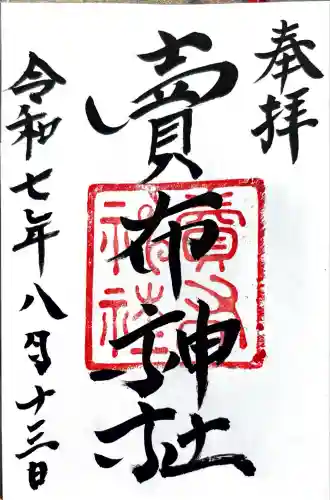 奉拝
賣布神社
令和七年八月十三日